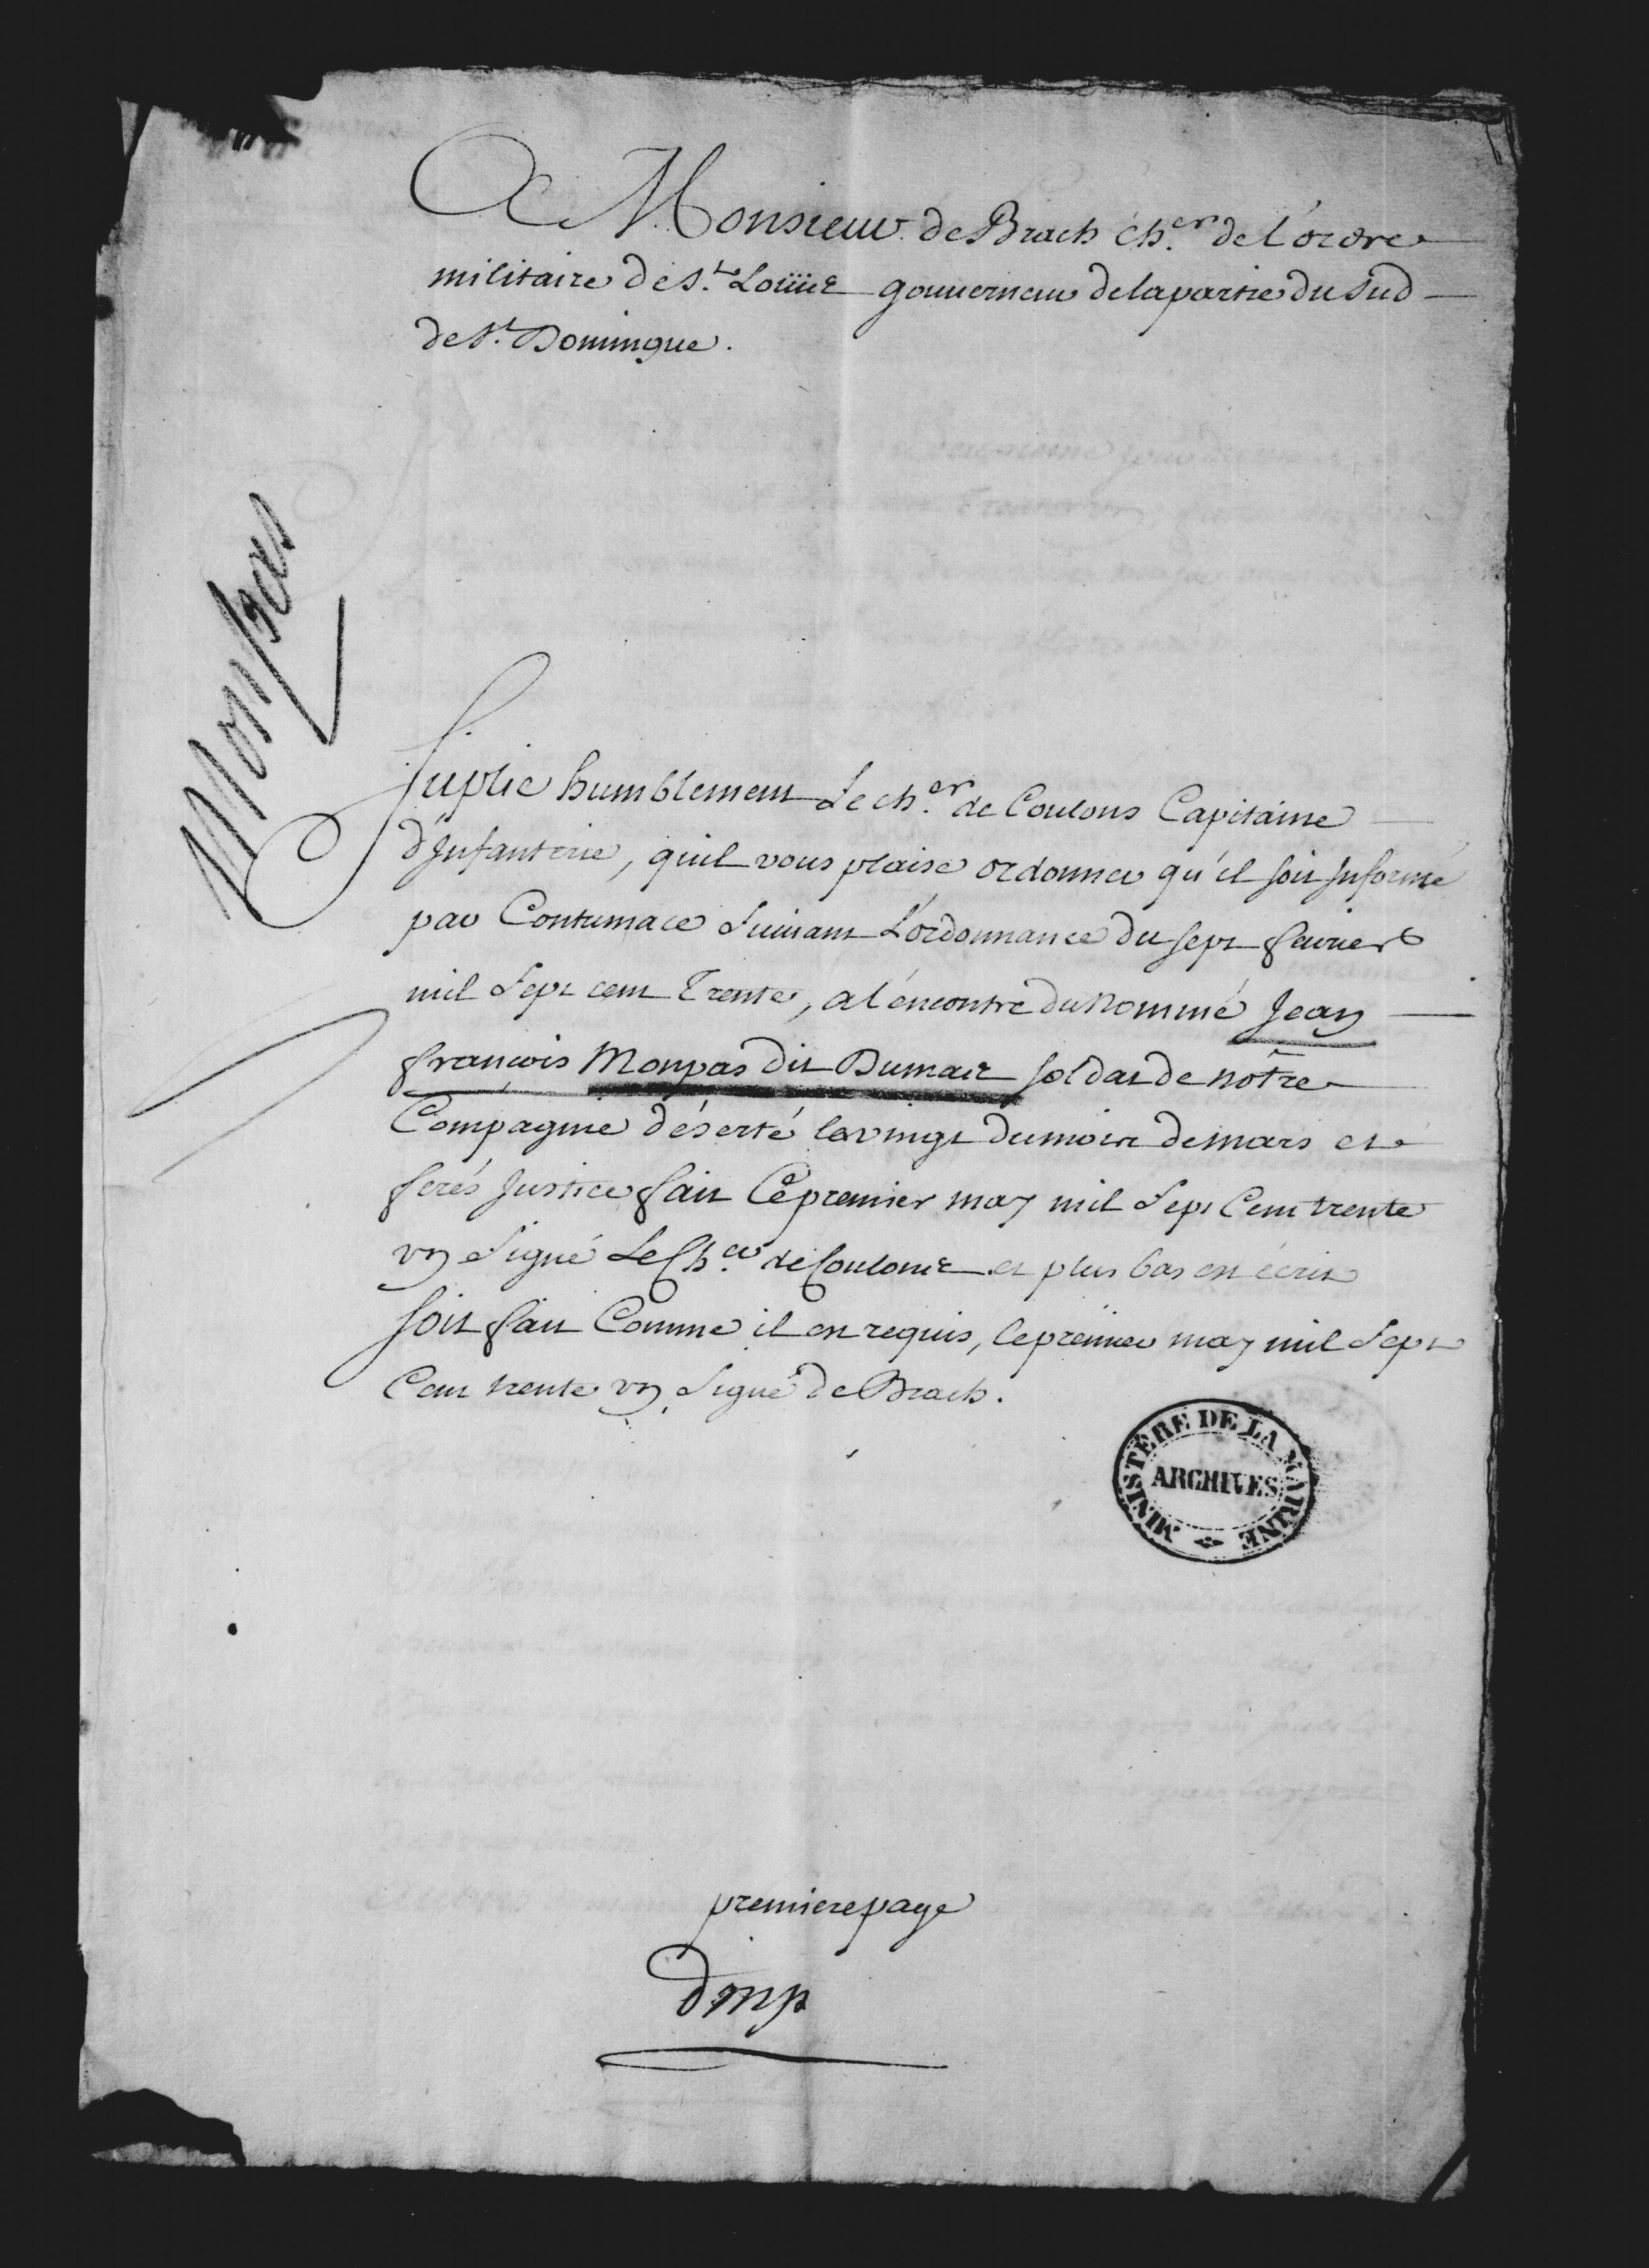 A Monsieur de Brach ch.er de l'ordre
militaire de s.t Loüis gouverneur de la partie du sud
de s.t Domingue.
Monpas
Suplie humblement Le ch.er de Coulons Capitaine
d'Infanterie, quil vous plaise ordonner qu'il soit Informé
par Contumace suivant L'ordonnance du sept fevrier
mil sept cent Trente, a l'encontre du nommé Jean
françois Monpas dit Dumais soldat de notre
Compagnie déserté le vingt du mois de mars et
ferés Justice fait Ce premier may mil sept Cent trente
un signé Le Ch.er de Coulons et plus bas est écrit
soit fait Comme il est requis, le premier may mil sept
Cent trente un signé de Brach.
MINISTÈRE DE LA MARINE
ARCHIVES
premiere page